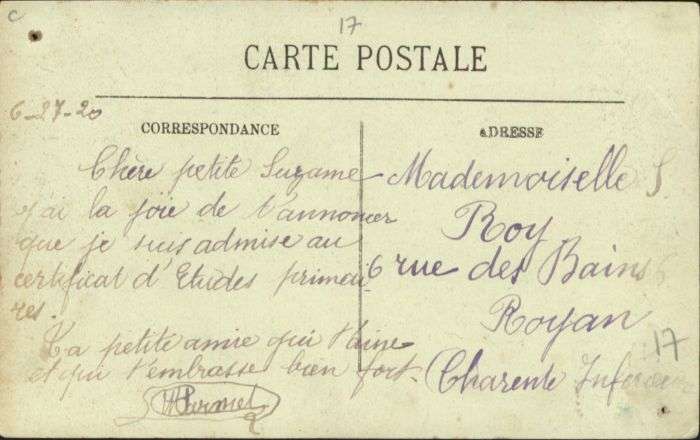 c
17
CARTE POSTALE
6-27-20
CORRESPONDANCE
Chère petite Suzanne
j'ai la joie de t'annoncer
que je suis admise au
certificat d'Etudes primai
res.
Ta petite amie qui t'aime
et qui t'embrasse bien fort.
ADRESSE
Mademoiselle S
Roy
6 rue des Bains 6
Royan
17
Charente Infér